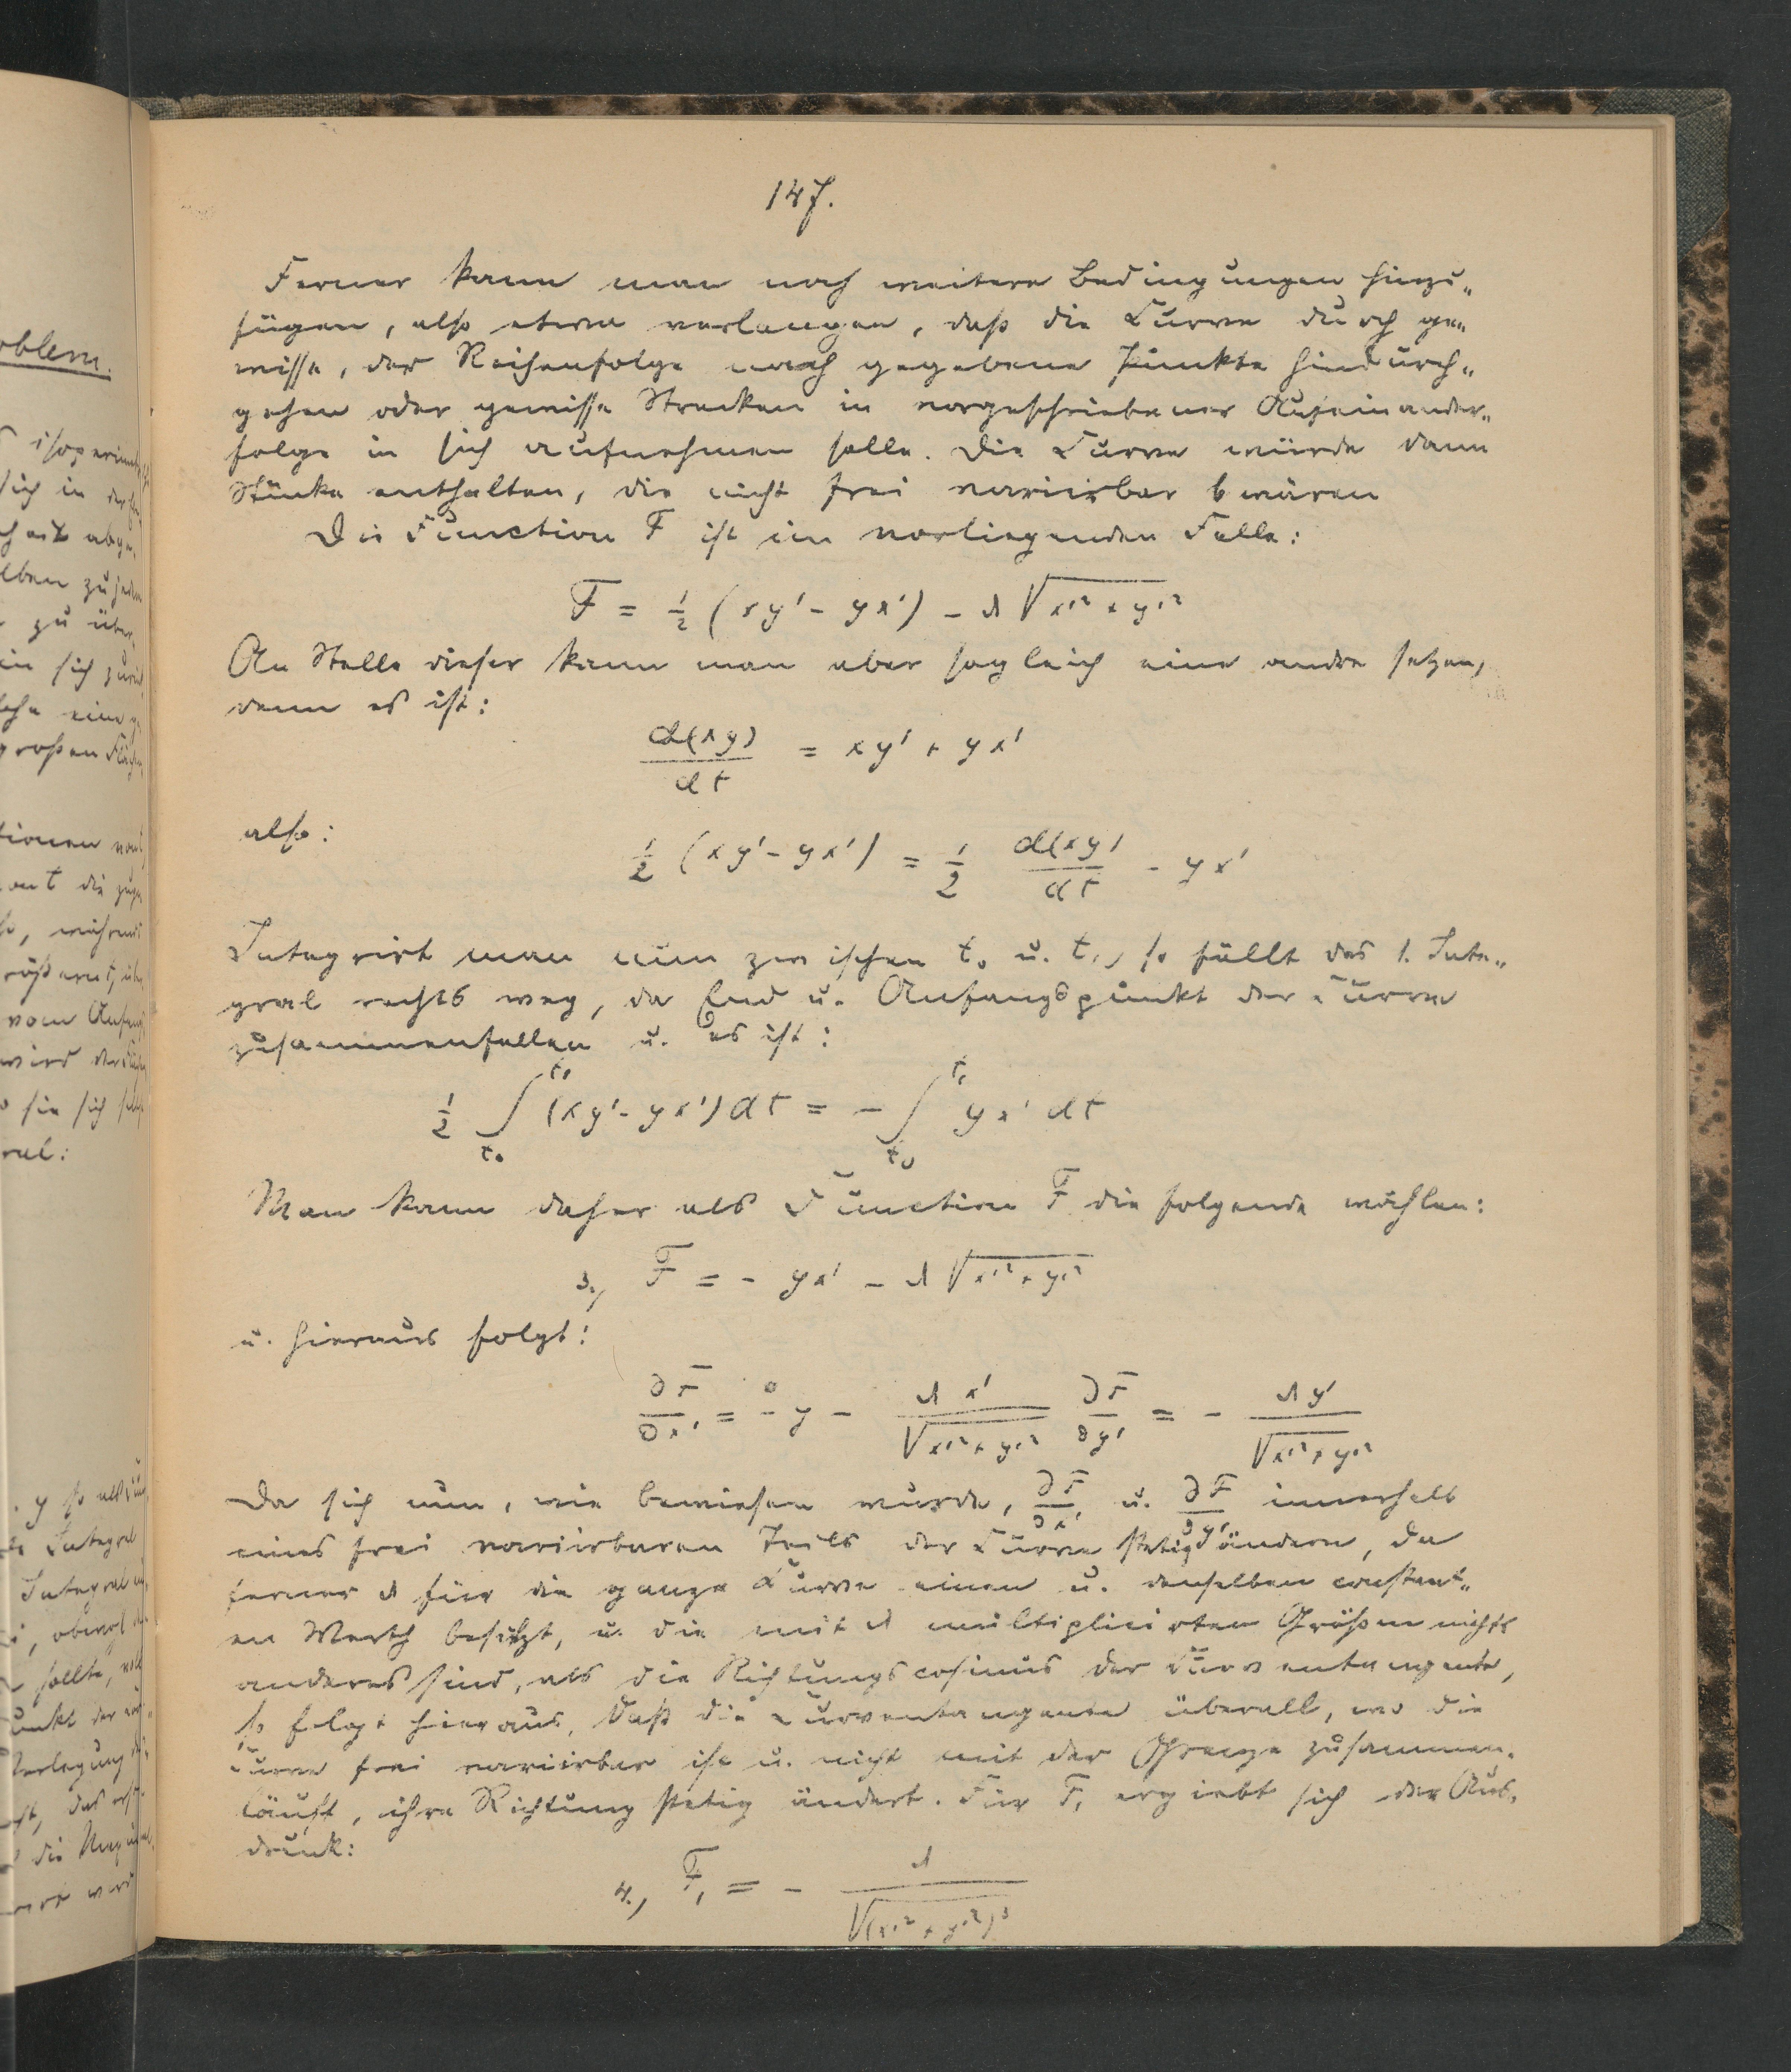 147.
Ferner kann man noch weitere Bedingungen hinzu„
fügen, also etwa verlangen, daß die Curve durch ge„
wisse, der Reihenfolge nach gegebene Punkte hindurch„
gehen oder gewisse Strecken in vorgeschriebener Aufeinander„
folge in sich aufnehmen solle. Die Curve würde dann
Stücke enthalten, die nicht frei variirbar wären
Die Function F ist im vorliegenden Falle:
F = ½ (xy' - yx') - λ √x'² + y'²
An Stelle dieser kann man aber sogleich eine andre setzen,
denn es ist:
d(xy)/dt = xy' + yx'
also:
½ (xy' - yx') = ½ d(xy)/dt - yx'
Integrirt man nun zwischen t₀ u. t₁, so fällt das 1. Inte„
gral rechts weg, da End u. Anfangspunkt der Curve
zusammenfallen u. es ist:
½ ∫ t₁ t₀ (xy' - yx') dt = - ∫ t₁ t₀ yx' dt
Man kann daher als Function F die folgende wählen:
3., F = - yx' - λ √x'² + y'²
u. hieraus folgt:
∂F/∂x' = - y - λx'/√x'² + y'² ∂F/∂y' = - λy'/√x'² + y'²
Da sich nun, wie bewiesen wurde, ∂F/∂x' u. ∂F/∂y' innerhalb
eines frei variirbaren Teils der Curve stetig ändern, da
ferner λ für die ganze Curve einen u. denselben constant„
en Werth besitzt, u. die mit λ multiplicirten Größen nichts
anderes sind, als die Richtungscosinus der Curventangente,
so folgt hieraus, daß die Curventangente überall, wo die
Curve frei variirbar ist u. nicht mit der Grenze zusammen„
läuft, ihre Richtung stetig ändert. Für F₁ ergiebt sich der Aus„
druck:
4., F₁ = - λ/√(x'² + y'²)³